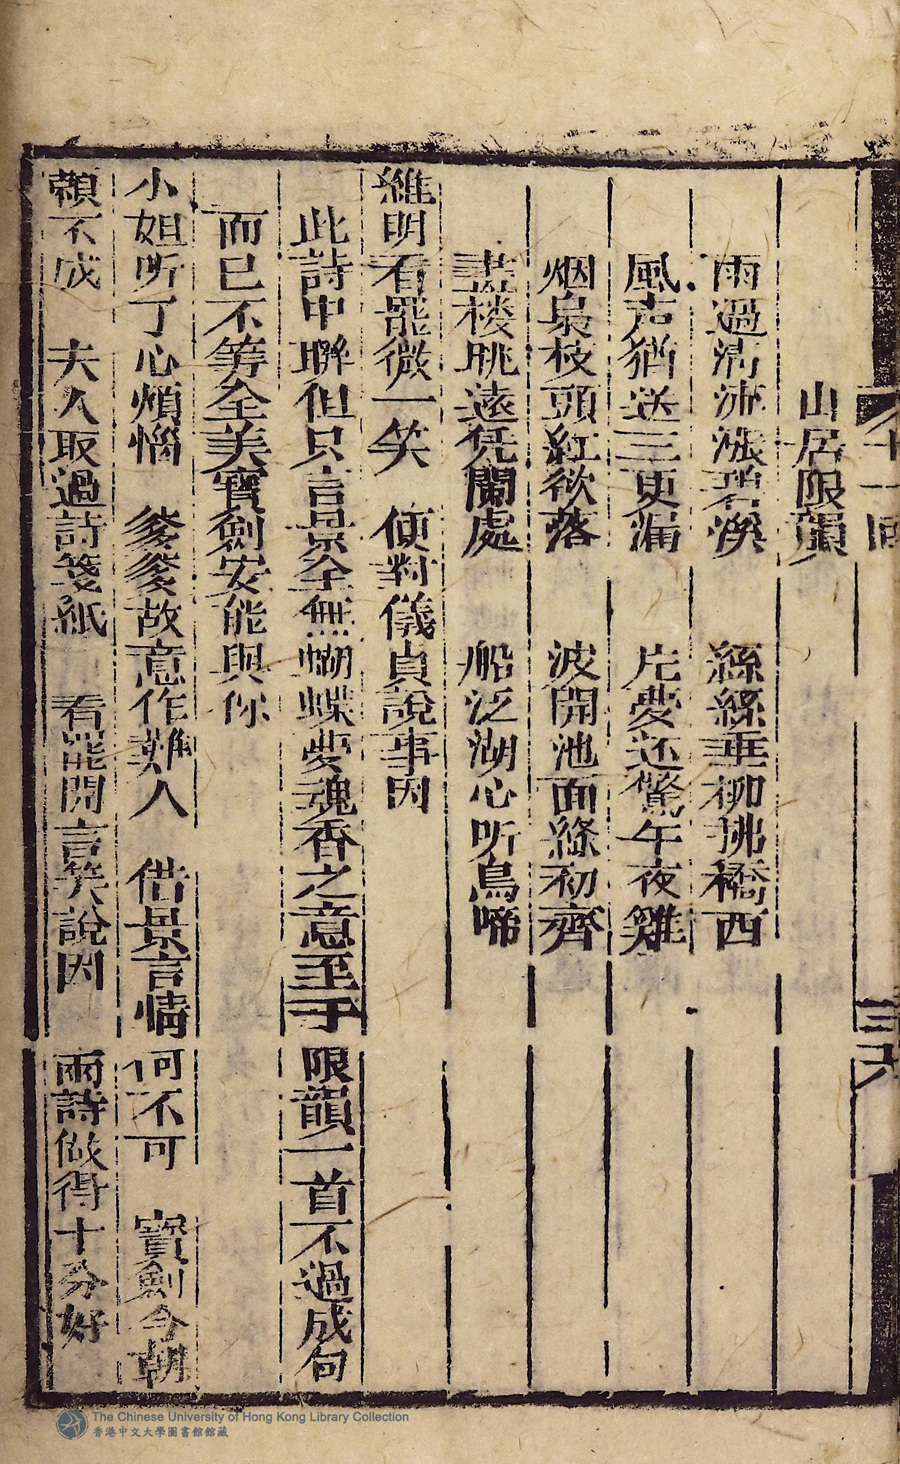 十一回
三六
山居限韻
雨過湾流漲碧溪　絲絲垂柳拂橋西
風声猶送三更漏　片夢还驚午夜雞
烟裊枝頭紅欲落　波開池面綠初齊
畫楼眺遠凭闌處　船泛湖心听鳥啼
維明看罷微一笑　便對儀貞說事因
此詩中聯但只言景全無蝴蝶夢魂香之意至于限韻一首不過成句
而已不等全美寶劍安能與你
小姐听了心煩惱　爹爹故意作難人　借景言情何不可　寶劍今朝
賴不成　夫人取過詩箋紙　看罷開言笑說因　兩詩做得十分好
The Chinese University of Hong Kong Library Collection
香港中文大學圖書館館藏